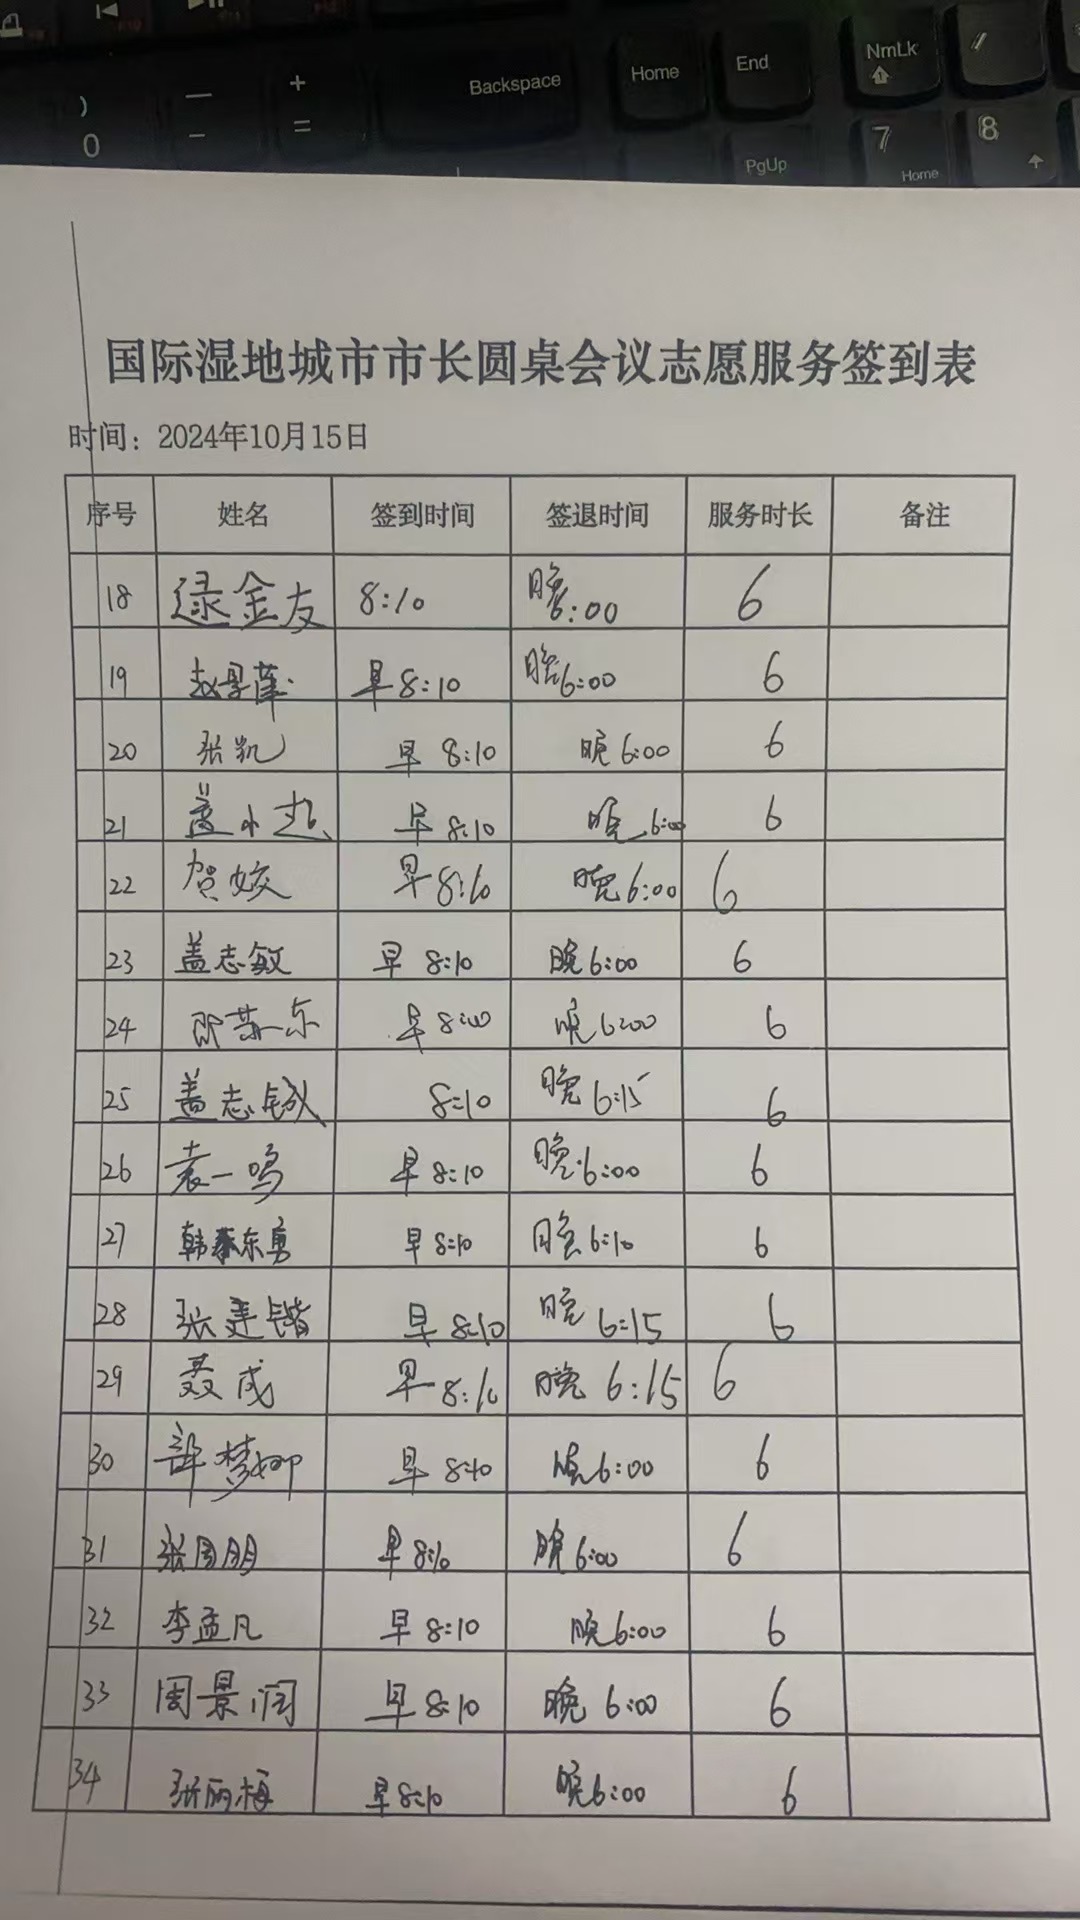 ) 0
— -
+ =
Backspace
Home
End
NmLk
/
PgUp
7 Home
8
国际湿地城市市长圆桌会议志愿服务签到表
时间：2024年10月15日
序号 姓名 签到时间 签退时间 服务时长 备注
18 逯金友 8:10 晚6:00 6
19 早8:10 晚6:00 6
20 张凯 早8:10 晚6:00 6
21 盖小超 早8:10 晚6:00 6
22 贺姣 早8:10 晚6:00 6
23 盖志敏 早8:10 晚6:00 6
24 早8:10 晚6:00 6
25 盖志铖 8:10 晚6:15 6
26 袁一鸣 早8:10 晚6:00 6
27 韩东勇 早8:10 晚6:10 6
28 张建锴 早8:10 晚6:15 6
29 聂成 早8:10 晚6:15 6
30 早8:10 晚6:00 6
31 张周朋 早8:10 晚6:00 6
32 李孟凡 早8:10 晚6:00 6
33 周景润 早8:10 晚6:00 6
34 张丽梅 早8:10 晚6:00 6